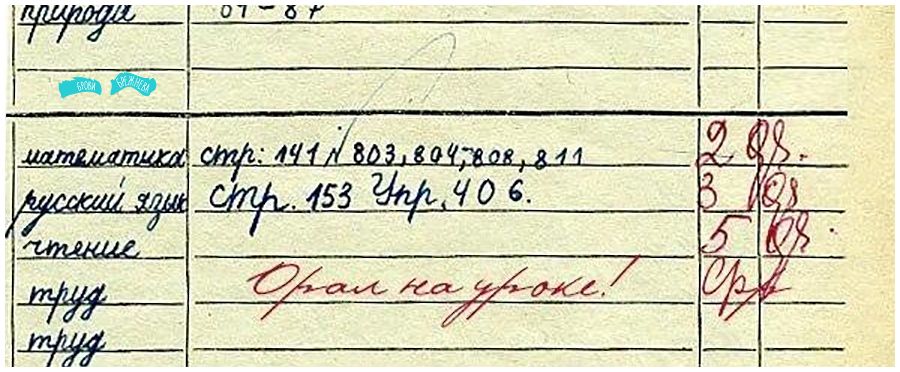 природа
БРОВИ БРЕЖНЕВА
математика стр: 141 № 803, 804, 808, 811 2
русский язык стр. 153 Упр. 406. 3
чтение 5
труд Орал на уроке!
труд